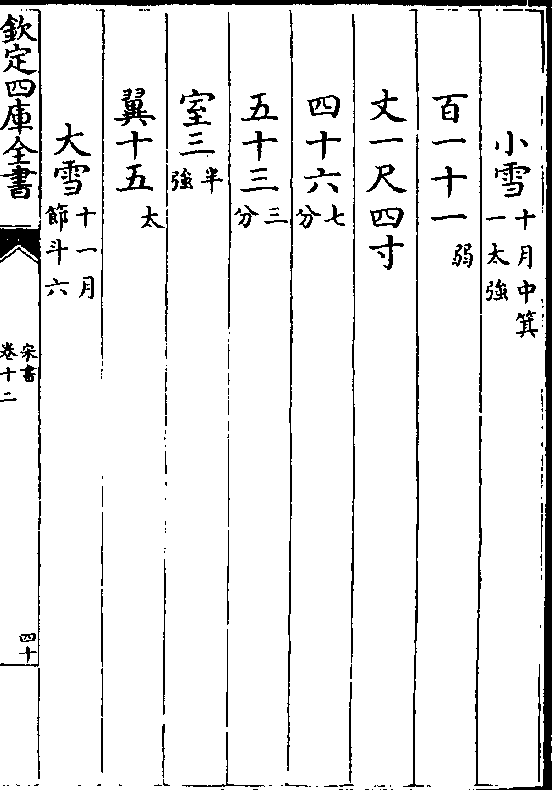 小雪十月中箕一太強
百一十一弱
丈一尺四寸
四十六七分
五十三三分
室三半強
翼十五太
大雪十一月節斗六
欽定四庫全書
宋書卷十二
四十